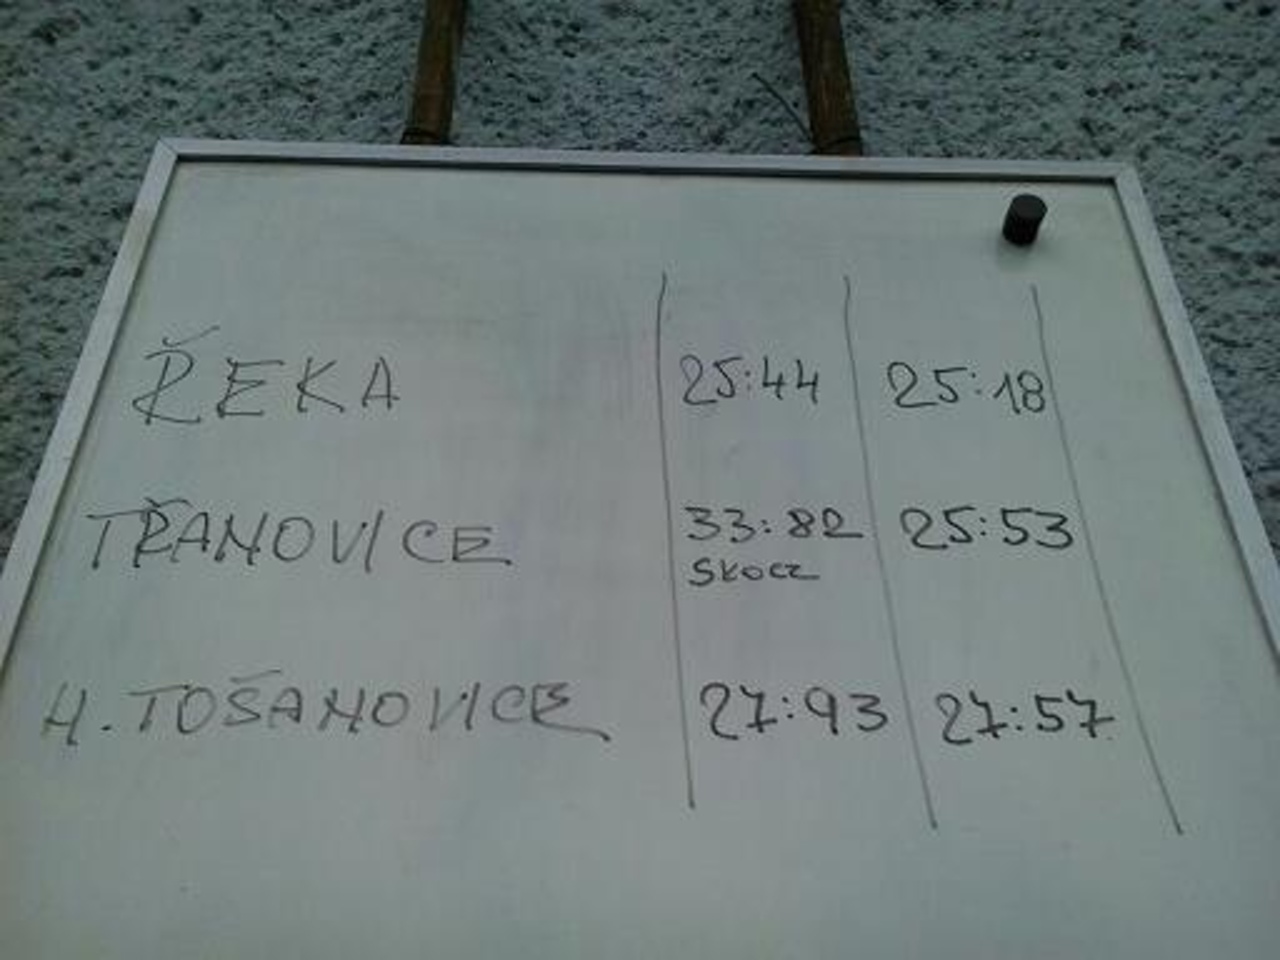 ŘEKA 25:44 25:18
TŘANOVICE 33:82 25:53
SKOCZ
H. TOŠANOVICE 27:93 27:57